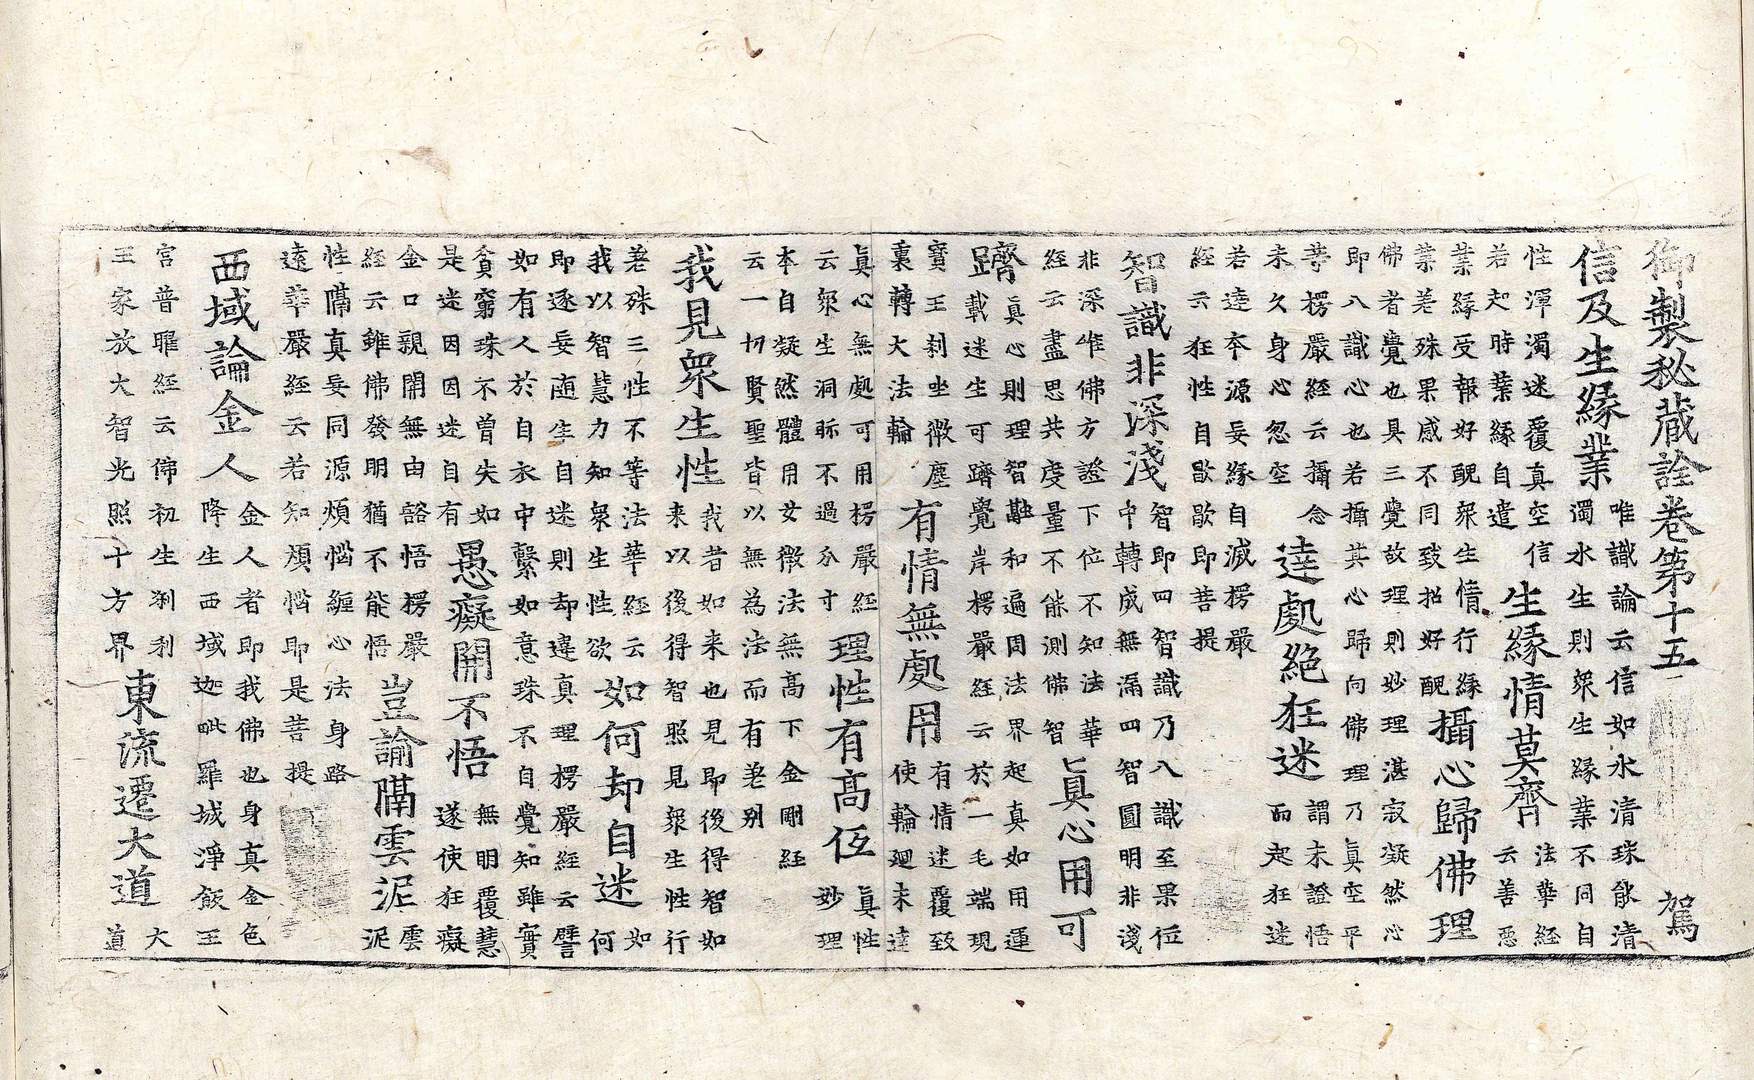 御製秘蔵詮卷第十五 駕
信及生緣業
唯識論云信如水清珠能清
濁水生則衆生緣業不同自
性渾濁迷覆真空信
若起時業緣自遣
生緣情莫齊
法華經
云善惡
業緣受報好醜衆生情行緣
業差殊果感不同致招好醜
攝心歸佛理
佛者覺也具三覺故理則妙理湛寂凝然心
即八識心也若攝其心歸向佛理乃真空平
等楞嚴經云攝念
未久身心忽空
達處絕狂迷
謂未證悟
而起狂迷
若達本源妄緣自滅楞嚴
經云狂性自歇歇即菩提
智識非深淺
智即四智識乃八識至果位
中轉成無漏四智圓明非淺
非深唯佛方證下位不知法華
經云盡思共度量不能測佛智
真心用可
躋
真心則理智融和遍周法界起真如用運
載迷生可躋覺岸楞嚴經云於一毛端現
寶王刹坐微塵
裏轉大法輪
有情無處用
有情迷覆致
使輪廻未達
真心無處可用楞嚴經
云衆生洞眎不過分寸
理性有髙伍
真性
妙理
本自凝然體用女微法無髙下金剛經
云一切賢聖皆以無為法而有差别
我見衆生性
我者如来也見即後得智如
来以後得智照見衆生性行
差殊三性不等法華經云
我以智慧力知衆生性欲
如何却自迷
如
何
即逐妄随生自迷則却違真理楞嚴經云譬
如有人於自衣中繫如意珠不自覺知雖實
貧窮珠不曾失如
是迷因因迷自有
愚癡開不悟
無明覆慧
遂使狂癡
金口親開無由豁悟楞嚴
經云雖佛發明猶不能悟
豈諭隔雲泥
雲
泥
性隔真妄同源煩惱纏心法身路
遠華嚴經云若知煩惱即是菩提
西域論金人
金人者即我佛也身真金色
降生西域迦毗羅城淨飯王
宮普曜經云佛初生刹利
王家放大智光照十方界
東流遷大道
大
道